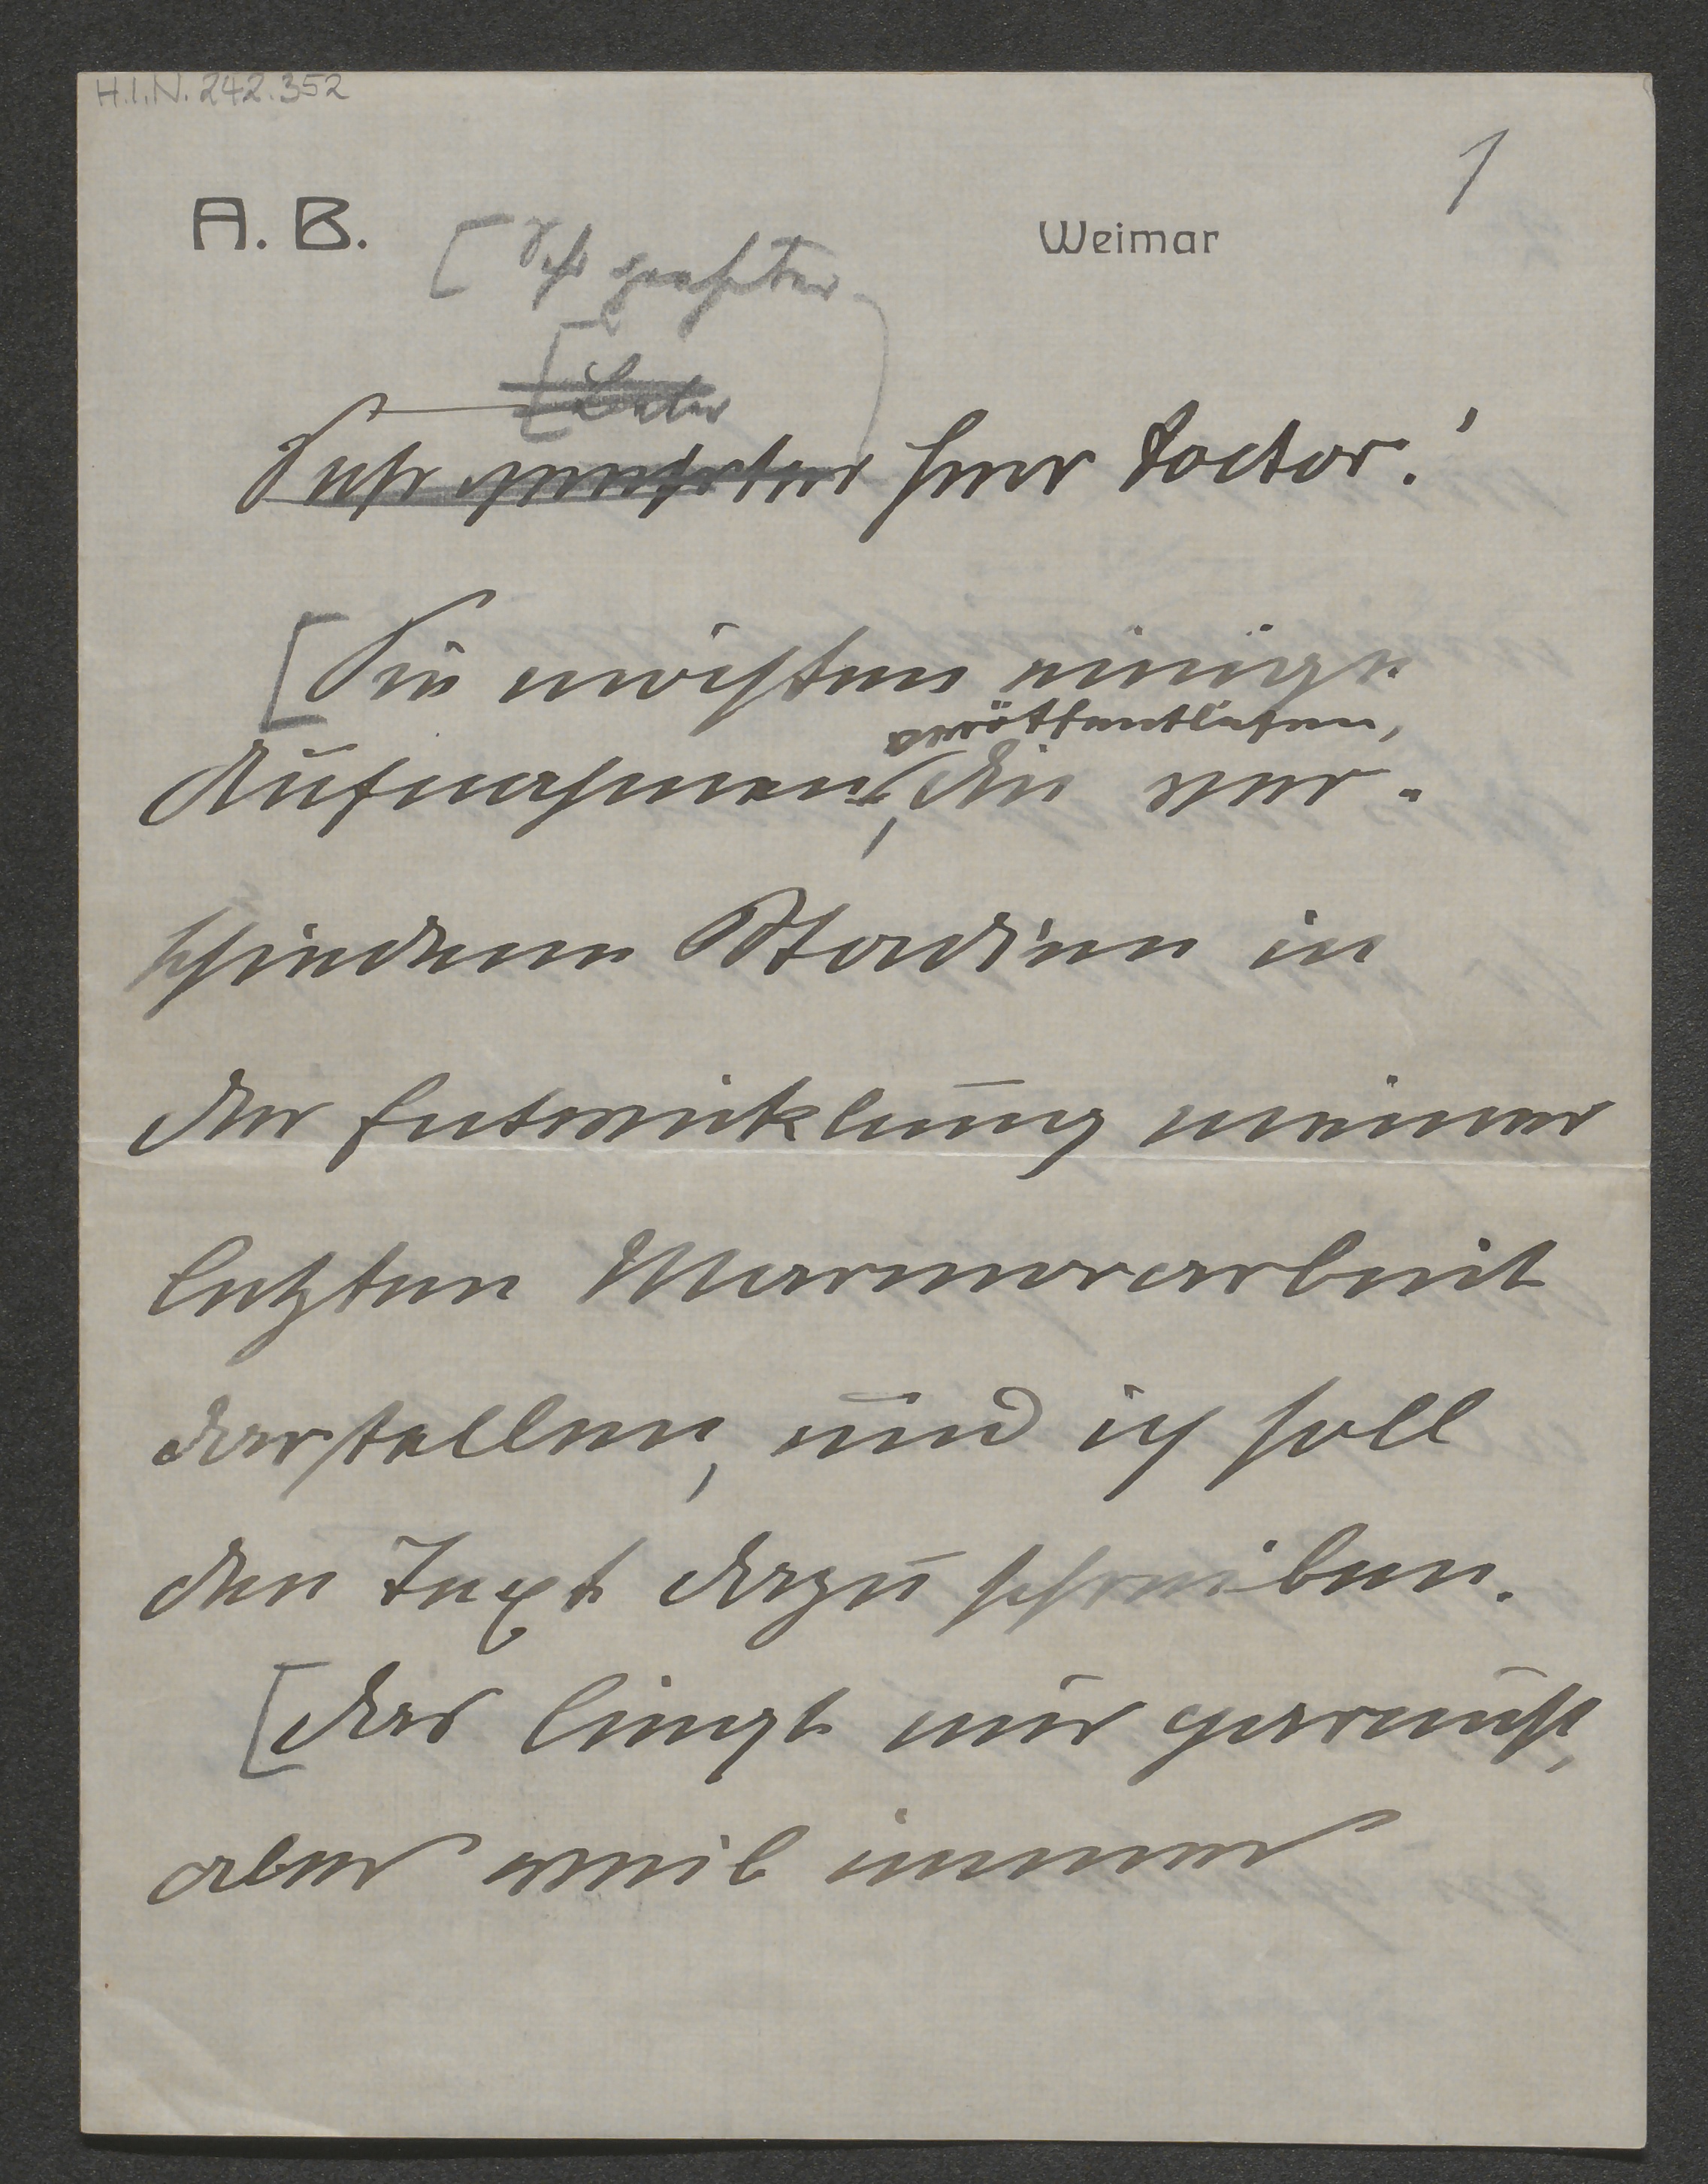 H.I.N. 242.352
1
A. B.
Weimar
[Sehr geehrter
[Lieber
Sehr geehrter Herr Doctor!
[Sie möchten einige
veröffentlichen,
Aufnahmen, die ver-
schiedene Stadien in
der Entwicklung meiner
letzten Marmorarbeit
darstellen, und ich soll
den Text dazu schreiben.
[Das liegt mir garnicht,
aber weil immer